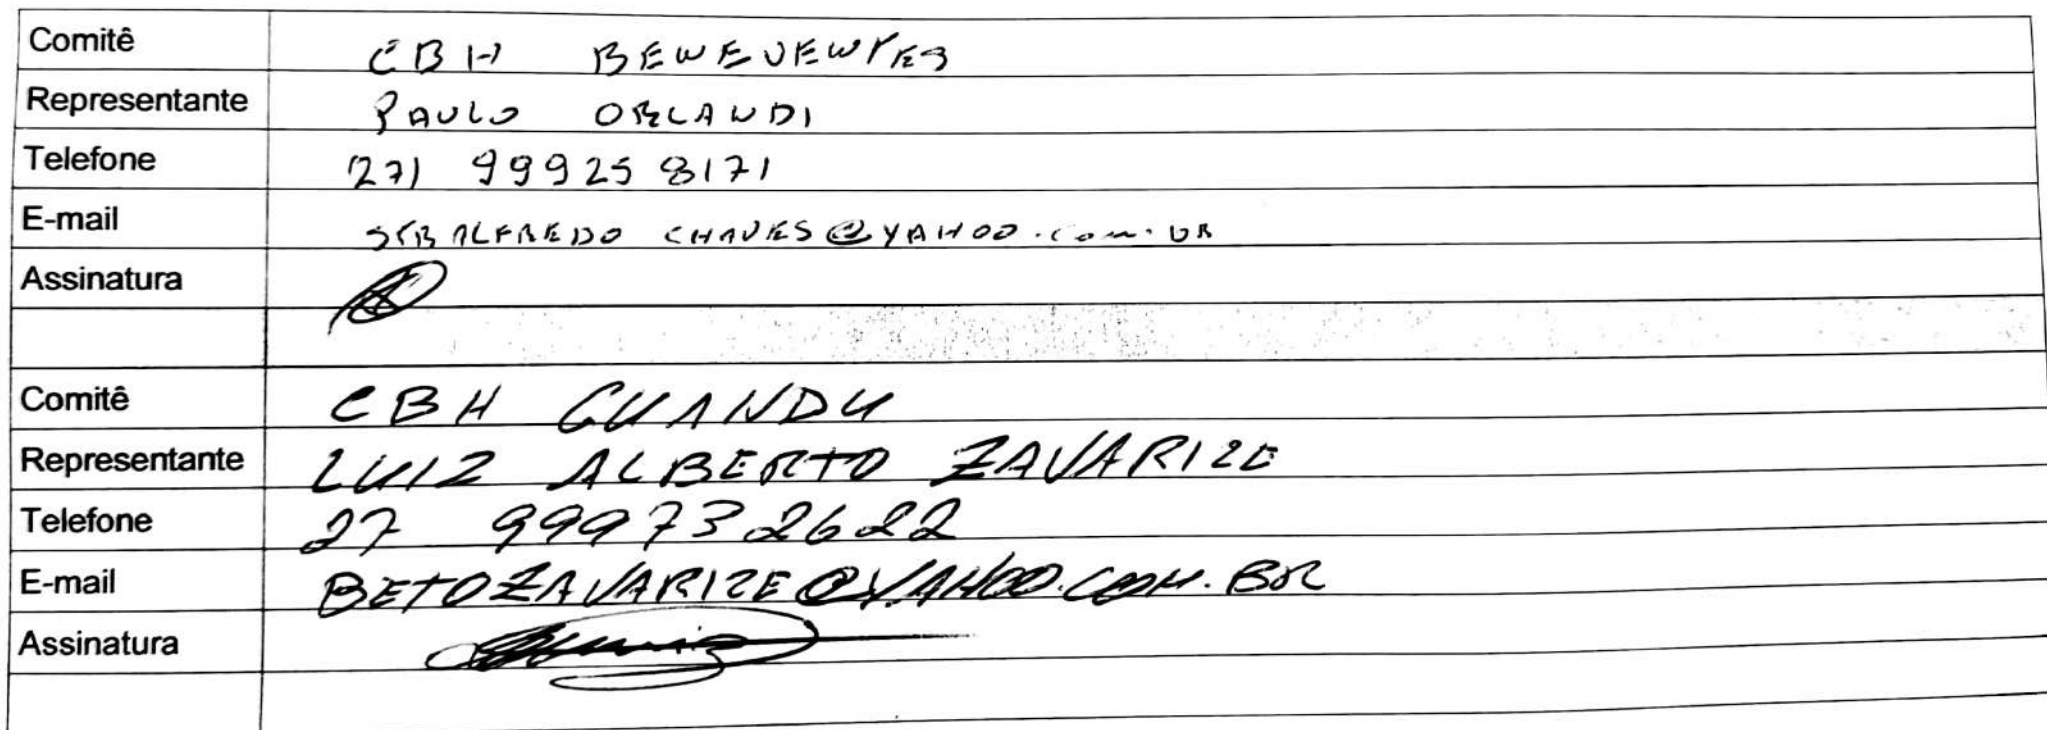 Comitê CBH BENEVENTES
Representante PAULO ORLANDI
Telefone (27) 99925 8171
E-mail CHAVES@YAHOO.COM.BR
Assinatura
Comitê CBH GUANDU
Representante LUIZ ALBERTO ZAVARIZE
Telefone 27 999732622
E-mail BETOZAVARIZE@YAHOO.COM.BR
Assinatura